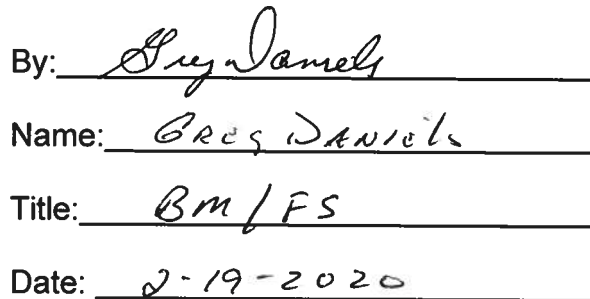 By: Greg Daniels
Name: GREG DANIELS
Title: BM/FS
Date: 2-19-2020